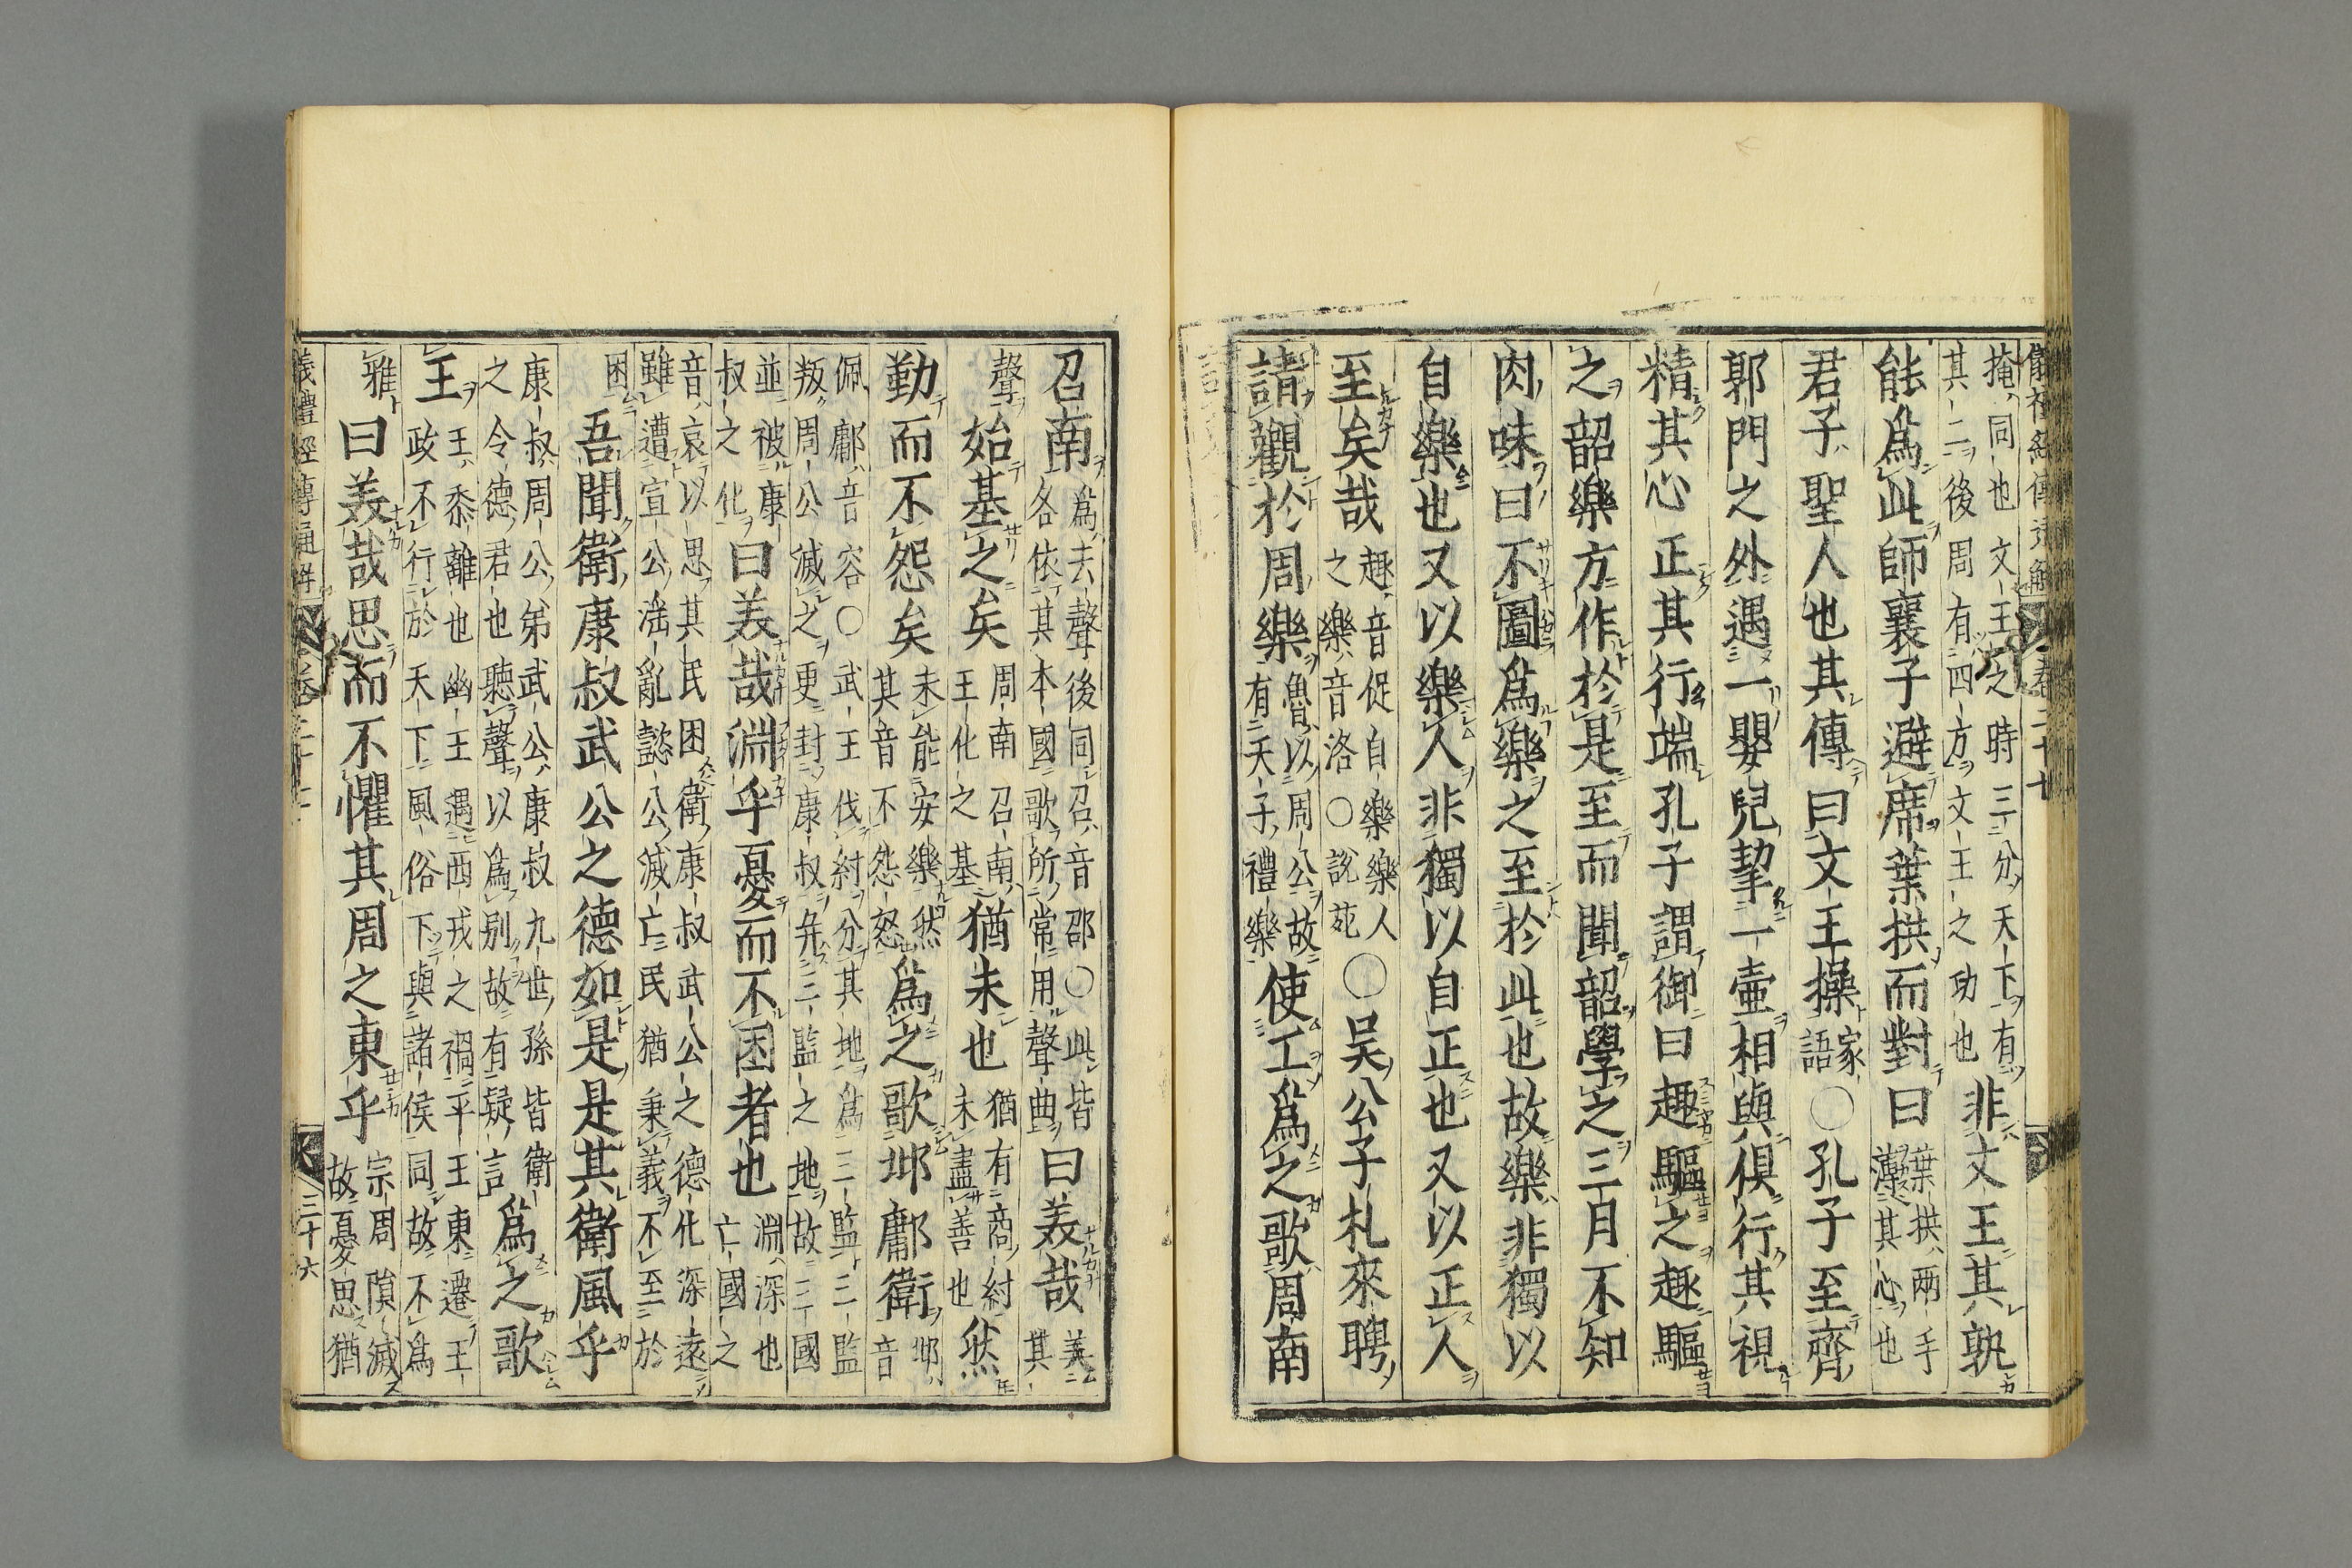 儀禮經傳通解 卷二十七
掩同也文王之時三分天下有
其二後周有四方文王之功也
非文王其孰
能爲此師襄子避席葉拱而對曰
葉拱兩手
薄其心也
君子聖人也其傳曰文王操
家
語
○孔子至齊
郭門之外遇一嬰兒挈一壷相與俱行其視
精其心正其行端孔子謂御曰趣驅之趣驅
之韶樂方作於是至而聞韶學之三月不知
肉味曰不圖爲樂之至於此也故樂非獨以
自樂也又以樂人非獨以自正也又以正人
至矣哉
趣音促自樂樂人
之樂音洛○說苑
○吳公子札來聘
請觀於周樂
魯以周公故
有天子禮樂
使工爲之歌周南
召南
爲去聲後同召音邵○此皆
各依其本國歌所常用聲曲
曰美哉
美
其
聲
始基之矣
周南召南
王化之基
猶未也
猶有商紂
未盡善也
然
勤而不怨矣
未能安樂然
其音不怨怒
爲之歌邶鄘衛
邶
音
佩鄘音容○武王伐紂分其地爲三監三監
叛周公滅之更封康叔并三監之地故三國
並被康
叔之化
曰美哉淵乎憂而不困者也
淵深也
亡國之
音哀以思其民困衛康叔武公之德化深遠
雖遭宣公淫亂懿公滅亡民猶秉義不至於
困
吾聞衛康叔武公之德如是是其衛風乎
康叔周公弟武公康叔九世孫皆衛
之令德君也聽聲以爲別故有疑言
爲之歌
王
王黍離也幽王遇西戎之禍平王東遷王
政不行於天下風俗下與諸侯同故不爲
雅
曰美哉思而不懼其周之東乎
宗周隕滅
故憂思猶
儀禮經傳通解 卷二十七 三十六